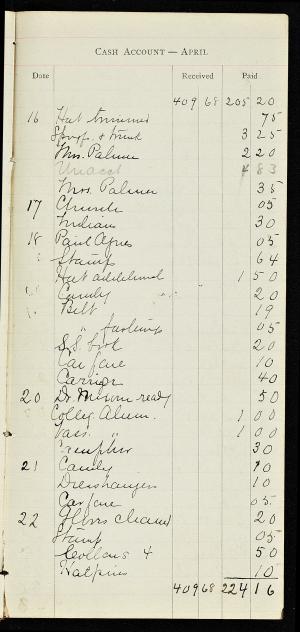 CASH ACCOUNT — APRIL
Date Received Paid
409 68 205 20
16 Hat trimmed 75
Spoof. & trunk 3 25
Mrs. Palmer 2 20
Unacct 4 83
Mrs. Palmer 35
17 Church 05
Indian 30
18 Paid Agnes 05
Stamps 64
Hat additional 1 50
Candy 20
Belt 19
" fastening 05
S.S. book 20
Car fare 10
Carriage 40
20 Dr. ready 50
Colleg. Alum. 1 00
Vass. " 1 00
Camphor 30
21 Candy 10
Dresshangers 10
Car fare 05
22 Gloves cleaned 20
Stamp 05
Collars & 50
Hatpins 10
409 68 224 16